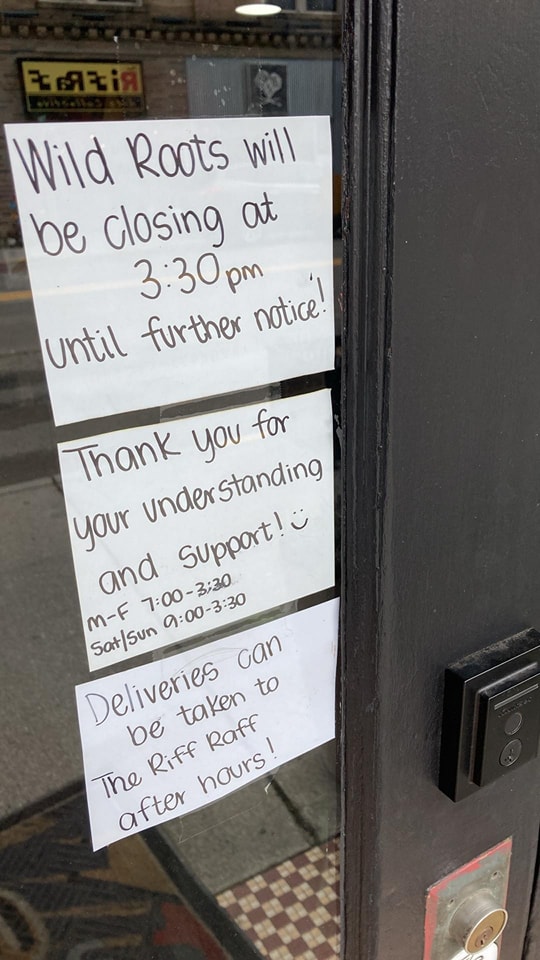 RiffRaff
Wild Roots will
be closing at
3:30pm
until further notice!
Thank you for
your understanding
and support! :)
M-F 7:00-3:30
Sat/Sun 9:00-3:30
Deliveries can
be taken to
The Riff Raff
after hours!